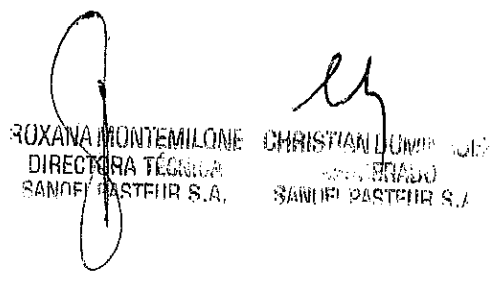 ROXANA MONTEMILONE
DIRECTORA TÉCNICA
SANOFI PASTEUR S.A.
CHRISTIAN
SANOFI PASTEUR S.A